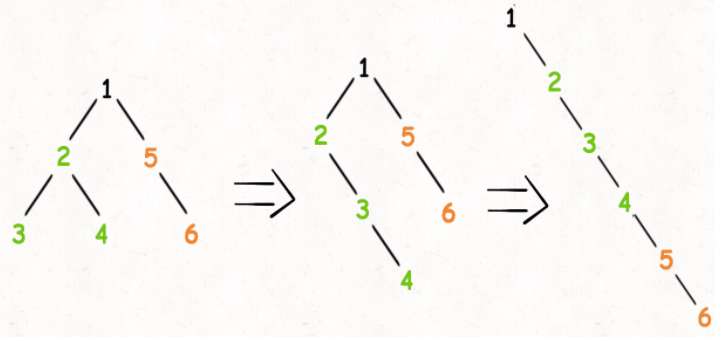 1
2 5
3 4 6
1
2 5
3 6
4
1
2
3
4
5
6